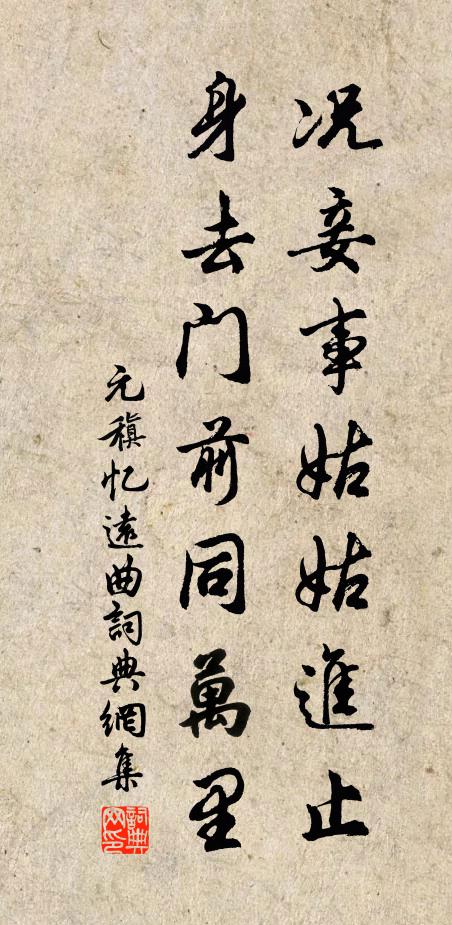 况妾事姑姑進止
身去門前同萬里
元稹忆遠曲詞典網集
詞典网印